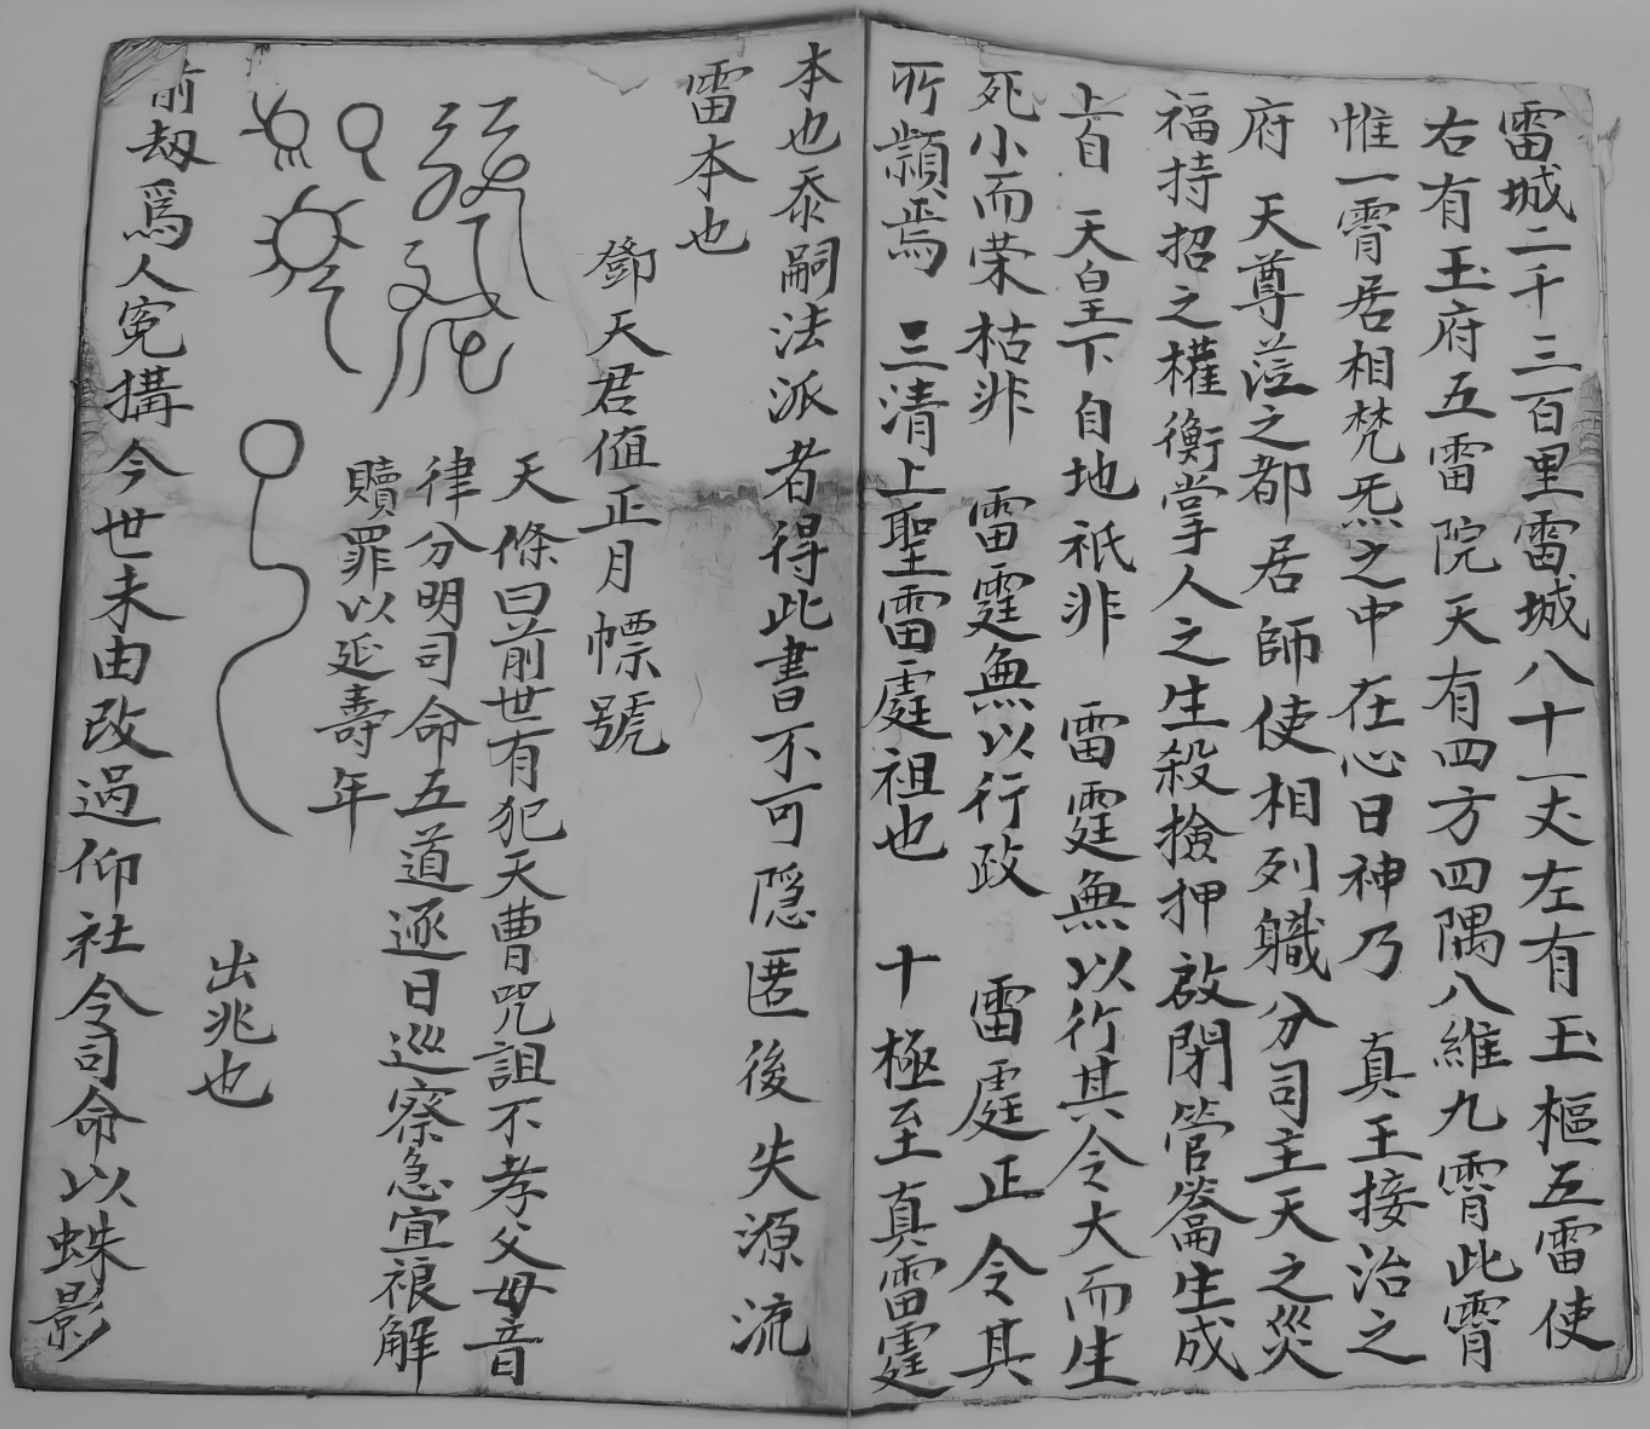 雷城二千三百里雷城八十一丈左有玉樞五雷使
右有玉府五雷院天有四方四隅八維九霄此霄
惟一霄居相梵炁之中在心曰神乃 真王接治之
府 天尊蒞之都居師使相列職分司主天之災
福持招之權衡掌人之生殺撿押啟閉管籥生成
上自 天皇下自地祇非 雷霆無以行其令大而生
死小而荣枯非 雷霆無以行政 雷霆正令其
所隸焉 三清上聖雷霆祖也 十極至真雷霆
本也忝嗣法派者得此書不可隠匿後失源流
雷本也
鄧天君值正月幖號
天條曰前世有犯天曹咒詛不孝父母音
律分明司命五道逐日巡察急宜禳解
贖罪以延壽年
出兆也
前刼爲人寃搆今世未由改過仰社令司命以蛛影